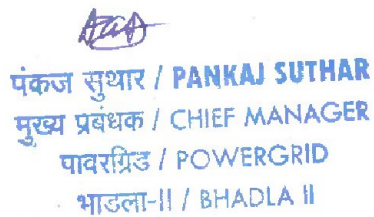 पंकज सुथार / PANKAJ SUTHAR
मुख्य प्रबंधक / CHIEF MANAGER
पावरग्रिड / POWERGRID
भाडला-II / BHADLA II